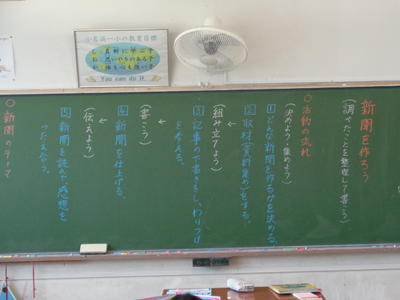 小名浜一小の教育目標
You can do it
新聞を作ろう
(調べたことを整理して書こう)
○活動の流れ
(決めよう・集めよう)
1 どんな新聞を作るかを決める。
2 取材(資料集め)をする。
(組み立てよう)
3 記事の下書きをし、わりつけ
を考える。
(書こう)
4 新聞を仕上げる。
(伝えよう)
5 新聞を読んで感想を
○新聞のテーマ